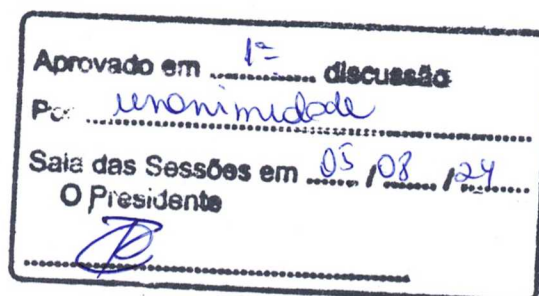 Aprovado em 1ª discussão
Por unanimidade
Sala das Sessões em 05/08/24
O Presidente